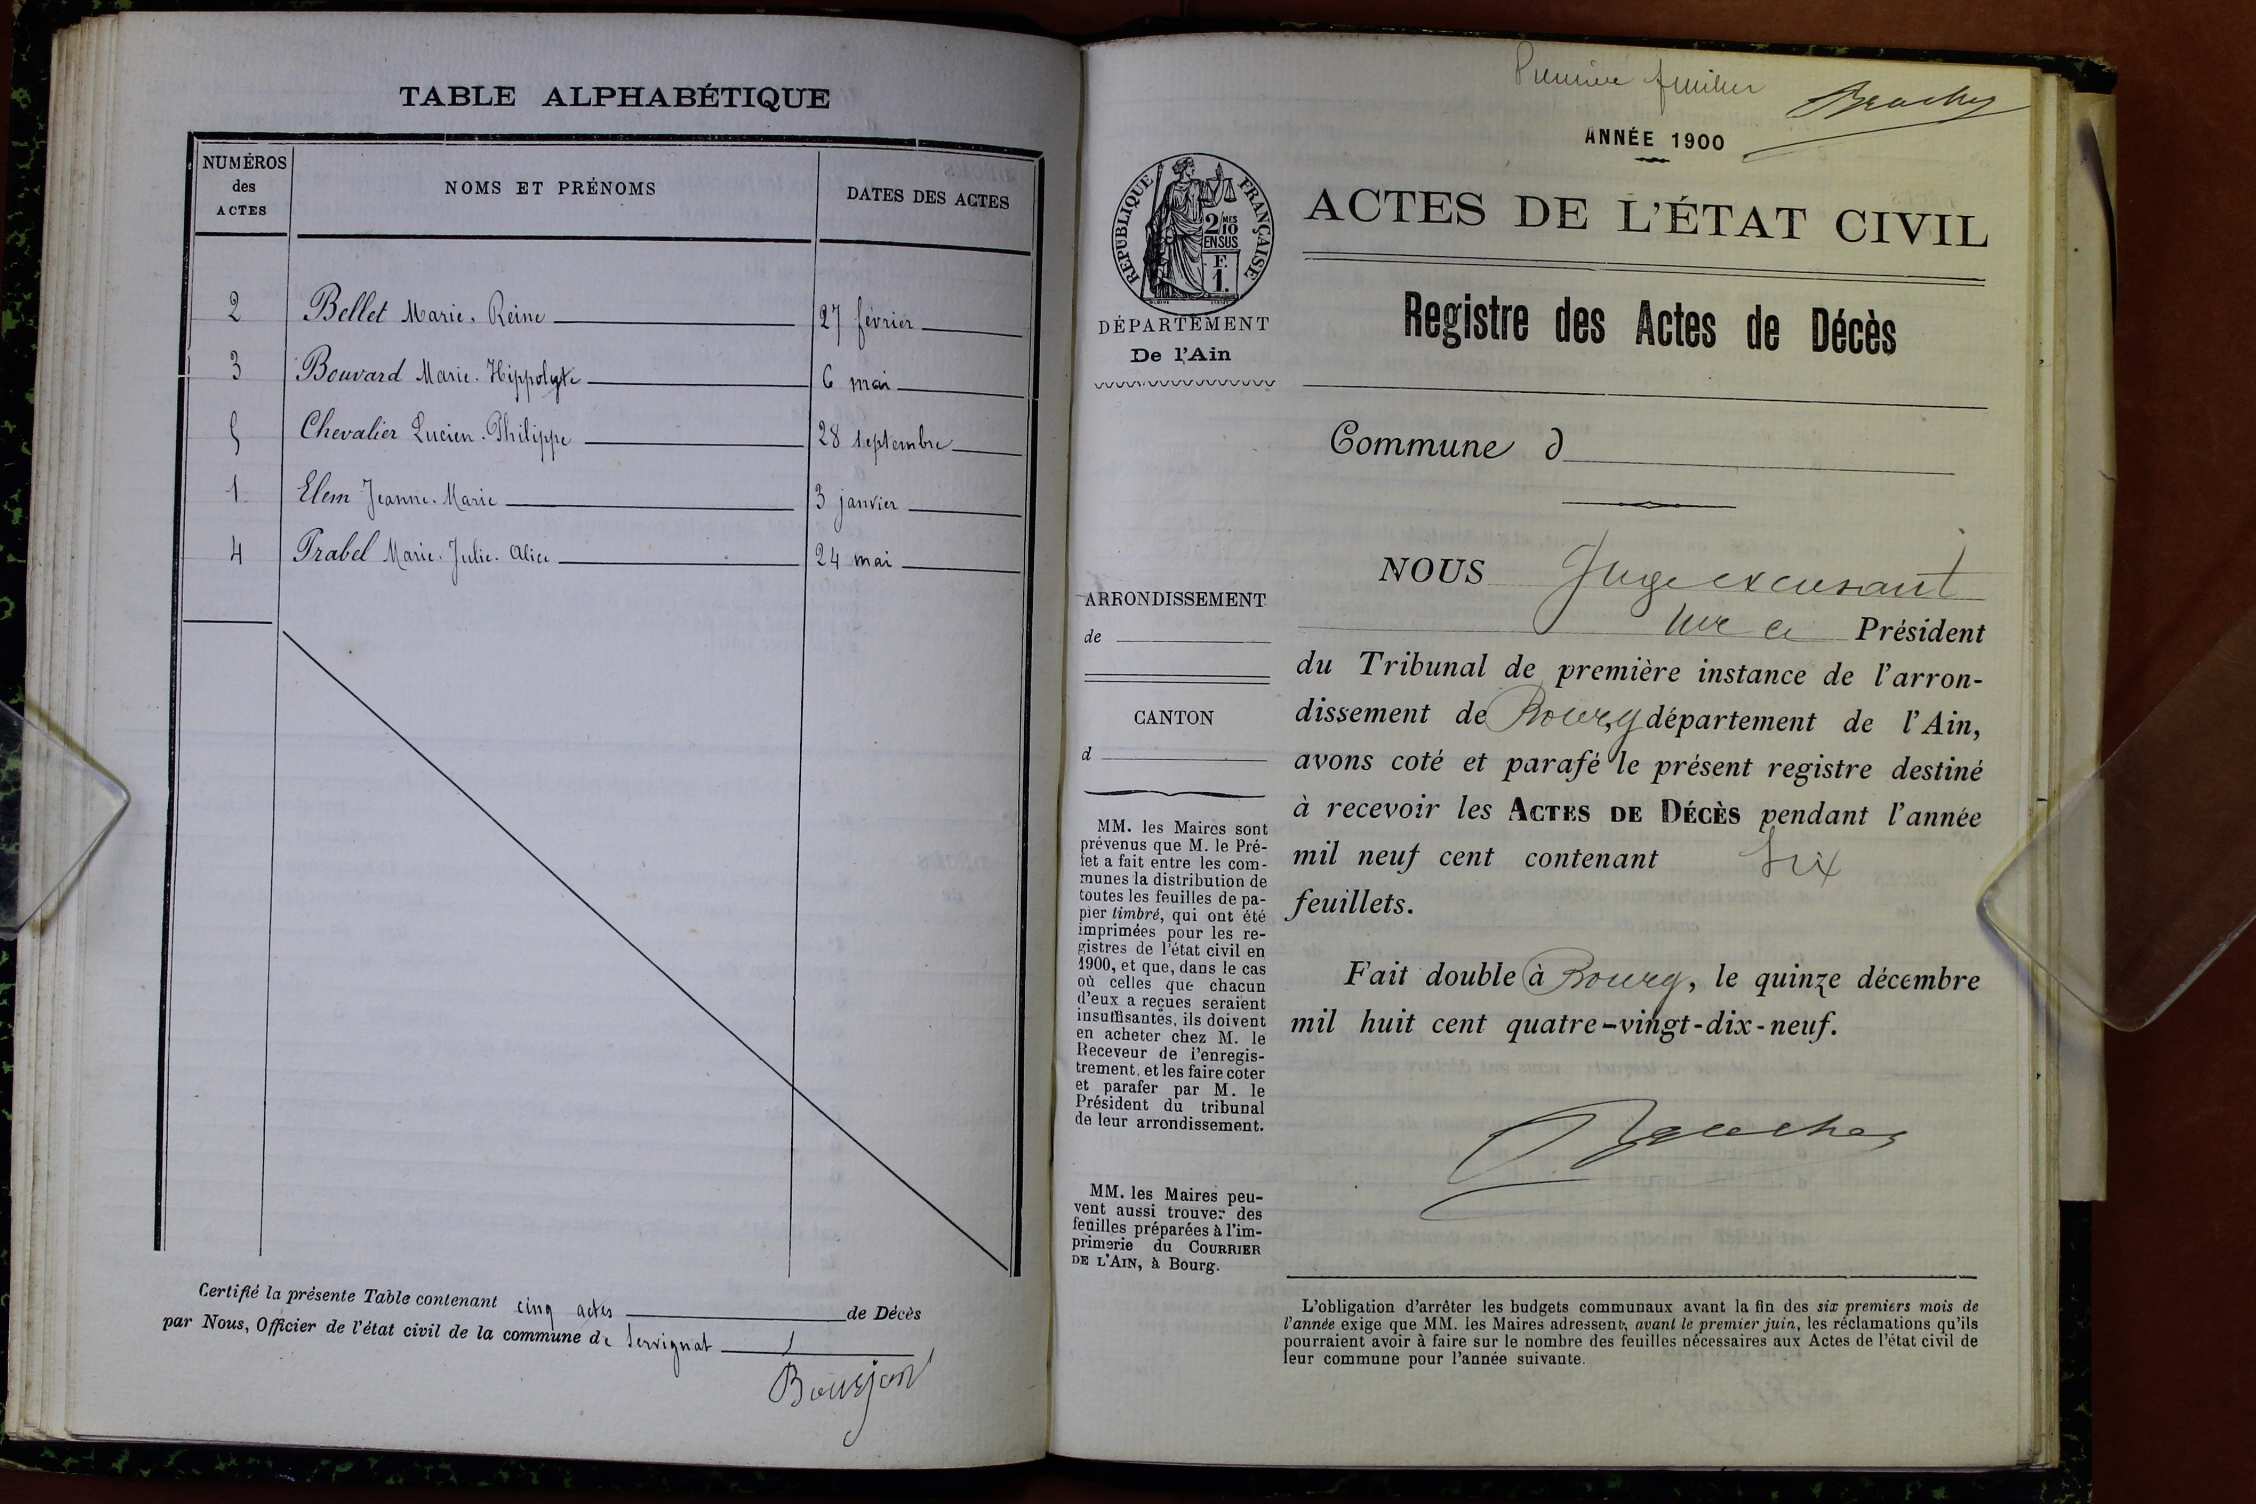 TABLE ALPHABÉTIQUE
NUMÉROS
des
ACTES
NOMS ET PRÉNOMS
DATES DES ACTES
2 Bellet Marie. Reine 27 février
3 Bouvard Marie. Hippolyte 6 mai
5 Chevalier Lucien. Philippe 28 septembre
1 Elem Jeanne. Marie 3 janvier
4 Prabel Marie. Julie. Alice 24 mai
Certifié la présente Table contenant cinq actes de Décès
par Nous, Officier de l'état civil de la commune de Servignat
Premier
ANNÉE 1900
RÉPUBLIQUE FRANÇAISE
2/10
MES
EN SUS
F.
1.
DÉPARTEMENT
De l'Ain
ARRONDISSEMENT
de
CANTON
d
MM. les Maires sont
prévenus que M. le Pré-
fet a fait entre les com-
munes la distribution de
toutes les feuilles de pa-
pier timbré, qui ont été
imprimées pour les re-
gistres de l'état civil en
1900, et que, dans le cas
où celles que chacun
d'eux a reçues seraient
insuffisantes, ils doivent
en acheter chez M. le
Receveur de l'enregis-
trement, et les faire coter
et parafer par M. le
Président du tribunal
de leur arrondissement.
MM. les Maires peu-
vent aussi trouver des
feuilles préparées à l'im-
primerie du COURRIER
DE L'AIN, à Bourg.
ACTES DE L'ÉTAT CIVIL
Registre des Actes de Décès
Commune d
NOUS Juge
Président
du Tribunal de première instance de l'arron-
dissement de Bourg département de l'Ain,
avons coté et parafé le présent registre destiné
à recevoir les ACTES DE DÉCÈS pendant l'année
mil neuf cent contenant Six
feuillets.
Fait double à Bourg, le quinze décembre
mil huit cent quatre-vingt-dix-neuf.
L'obligation d'arrêter les budgets communaux avant la fin des six premiers mois de
l'année exige que MM. les Maires adressent, avant le premier juin, les réclamations qu'ils
pourraient avoir à faire sur le nombre des feuilles nécessaires aux Actes de l'état civil de
leur commune pour l'année suivante.